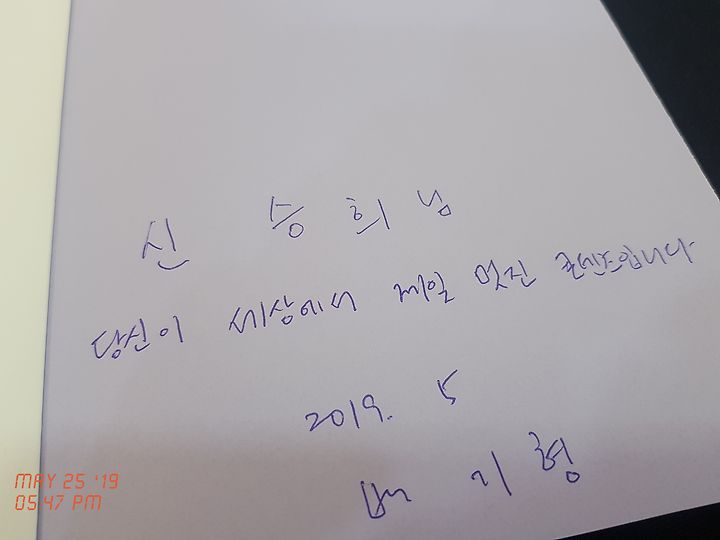 신 승희님
당신이 세상에서 제일 멋진 콘텐츠입니다
2019. 5
배 기형
MAY 25 '19
05:47 PM